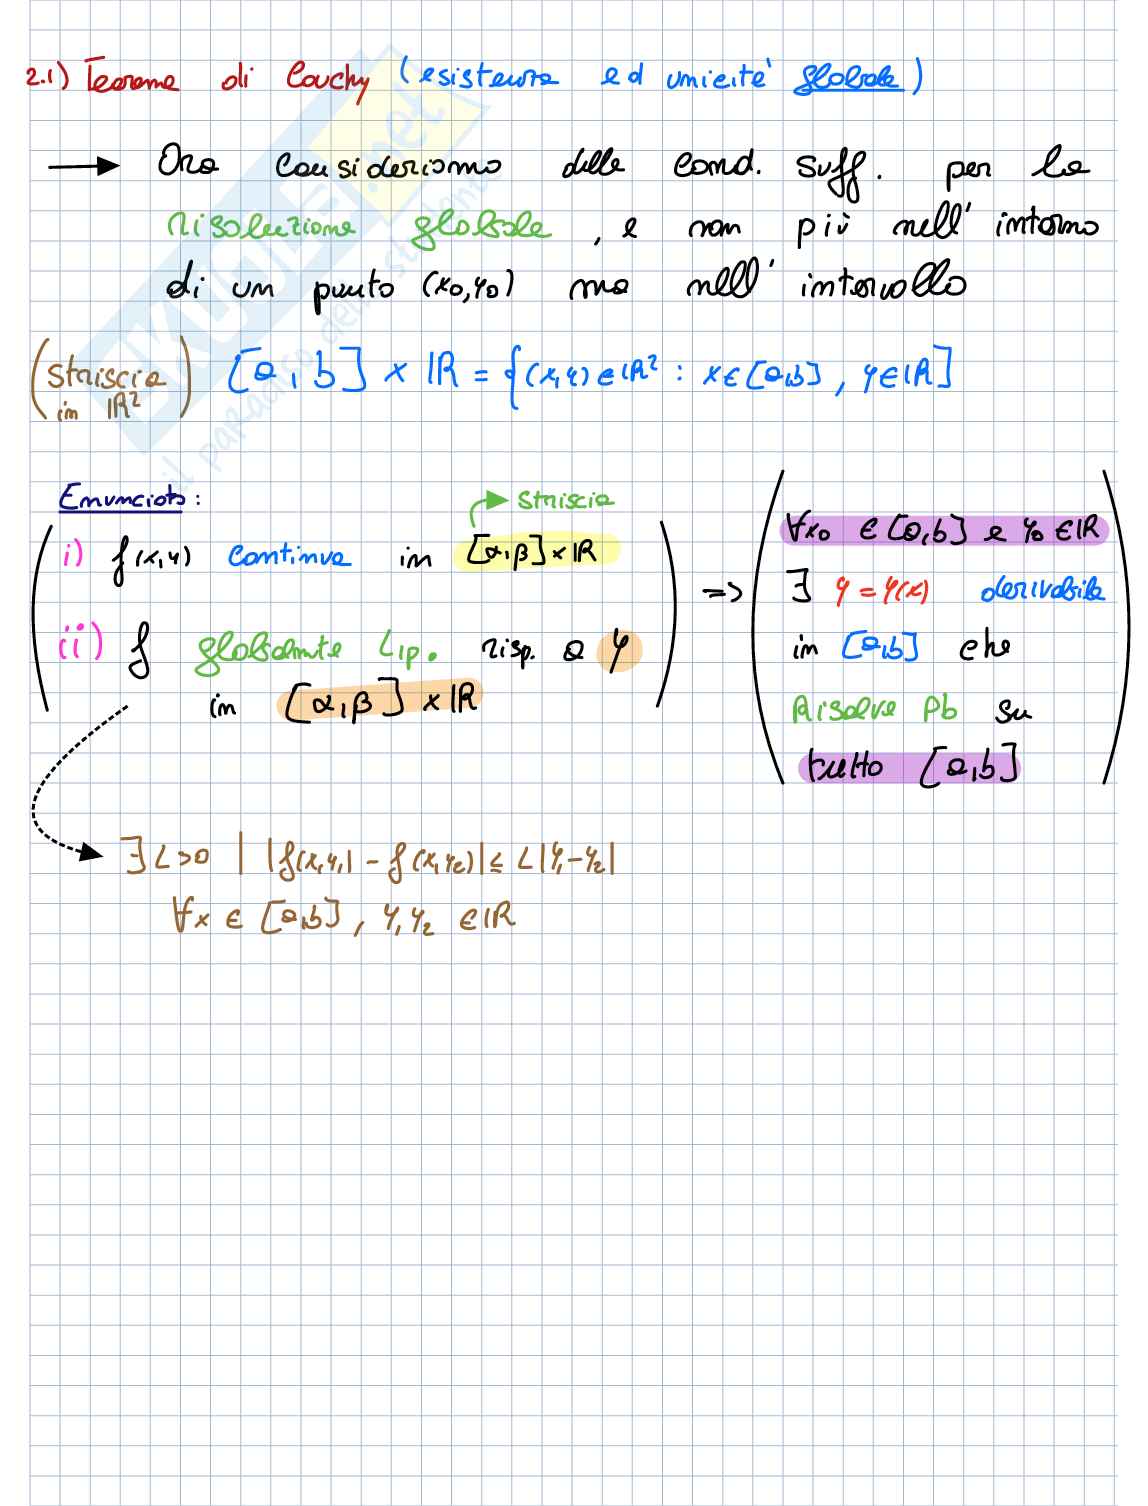 2.1) Teorema di Cauchy (esistenza ed unicità globale)
→ Ora consideriamo delle cond. suff. per la
risoluzione globale, e non più nell'intorno
di un punto (x0,y0) ma nell'intervallo
(striscia in IR²) [a,b] × IR = {(x,y) ∈ IR² : x∈[a,b], y∈IR]
Enunciato:
→ striscia
i) f(x,y) continua in [α,β]×IR
ii) f globalmnte Lip. risp. a y
in [α,β] × IR
=>
∀x0 ∈ [a,b] e y0 ∈ IR
∃ y = y(x) derivabile
in [a,b] che
Risolve Pb su
tutto [a,b]
∃ L>0 | |f(x,y1) - f(x,y2)| ≤ L|y1-y2|
∀x ∈ [a,b], y1,y2 ∈ IR
SKUOLA.net
il paradiso dello studente